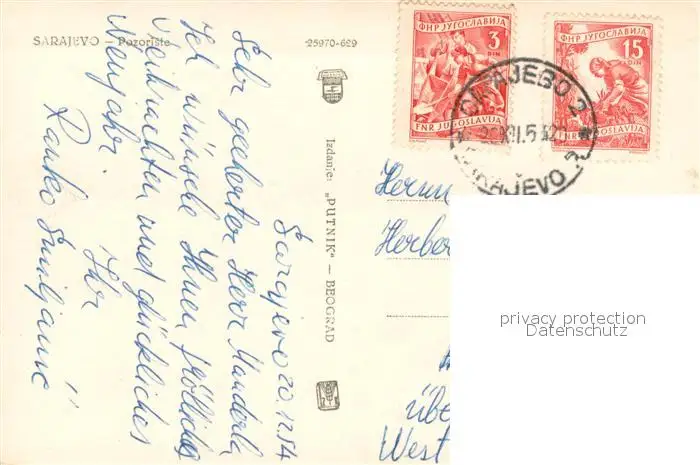 SARAJEVO — Pozorište
25970-629
Izdanje: „PUTNIK“ — BEOGRAD
Sarajevo 20.12.54
Sehr geehrter Herr
Ich wünsche Ihnen fröhliches
Weihnachten und glückliches
Neujahr.
Ihr
Ranko
ФНР ЈУГОСЛАВИЈА
3
DIN
FNR JUGOSLAVIJA
ФНР ЈУГОСЛАВИЈА
15
DIN
FNR JUGOSLAVIJA
САРАЈЕВО 2
SARAJEVO 2
Herrn
Herber
übe
West
privacy protection
Datenschutz